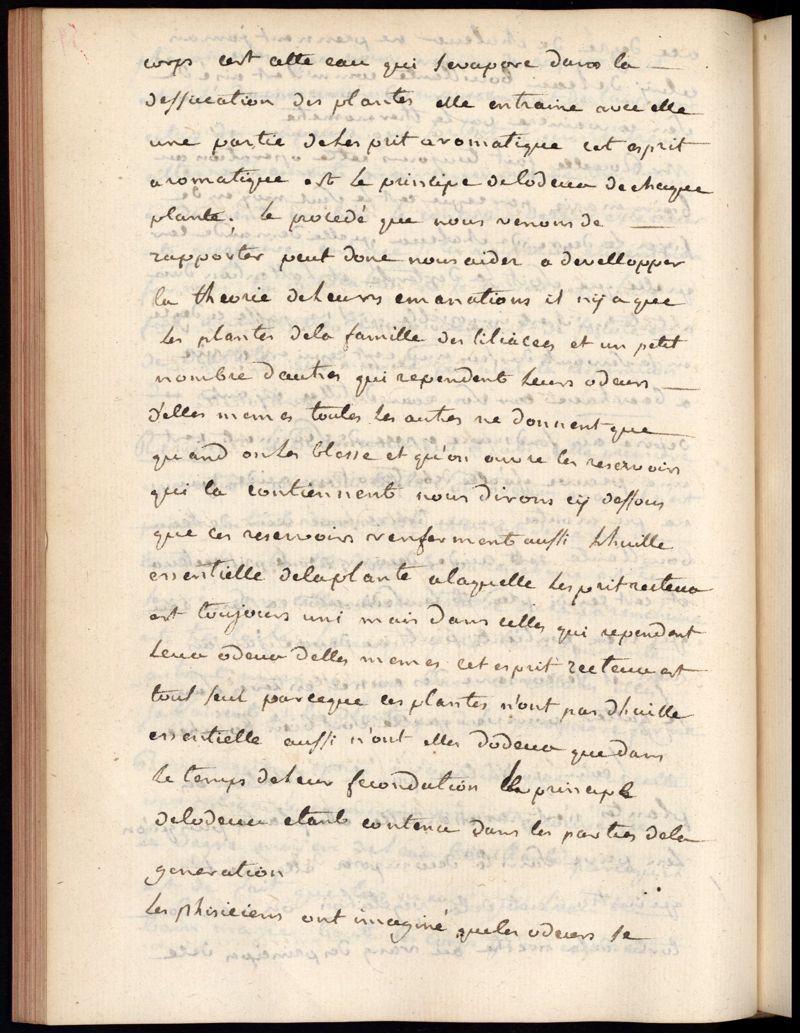 corps cest cette eau qui sevapore dans la
dessication des plantes elle entraine avec elle
une partie de lesprit aromatique cet esprit
aromatique est le principe de lodeur de chaque
plante. le procedé que nous venons de
rapporter peut donc nous aider a devellopper
la theorie de leurs emanations il ny a que
les plantes de la famille des liliacées et un petit
nombre dautres qui rependent leurs odeurs
d'elles memes toutes les autres ne donnent que
quand on les blesse et qu'on ouvre les reservoirs
qui la contiennent nous dirons cy dessous
que ces reservoirs renferment aussi lhuille
essentielle de la plante a laquelle lesprit recteur
est toujours uni mais dans celles qui rependent
leur odeur delles memes cet esprit recteur est
tout seul parceque ces plantes n'ont pas dhuille
essentielle aussi n'ont elles dodeur que dans
le temps de leur fecondation le principe
de lodeur etant contenu dans les parties de la
generation
les phisiciens ont imaginé que les odeurs se